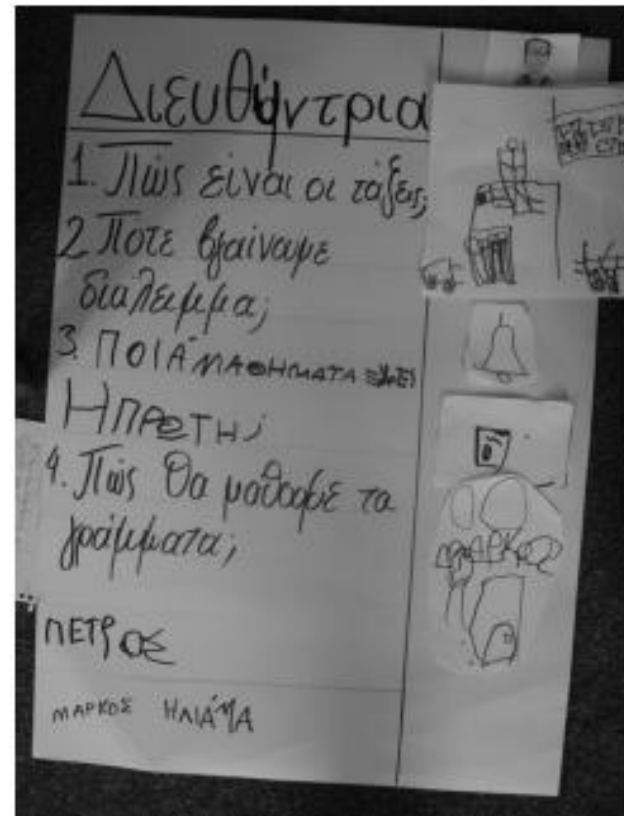 Διευθύντρια
1. Πώς είναι οι τάξεις;
2 Ποτε βγαίνουμε
διαλειμμα;
3. ΠΟΙΑ ΜΑΘΗΜΑΤΑ ΕΧΕΙ
Η ΠΡΩΤΗ;
4. Πώς θα μάθουμε τα
γράμματα;
ΠΕΤΡΟΣ
ΜΑΡΚΟΣ ΗΛΙΑΝΑ